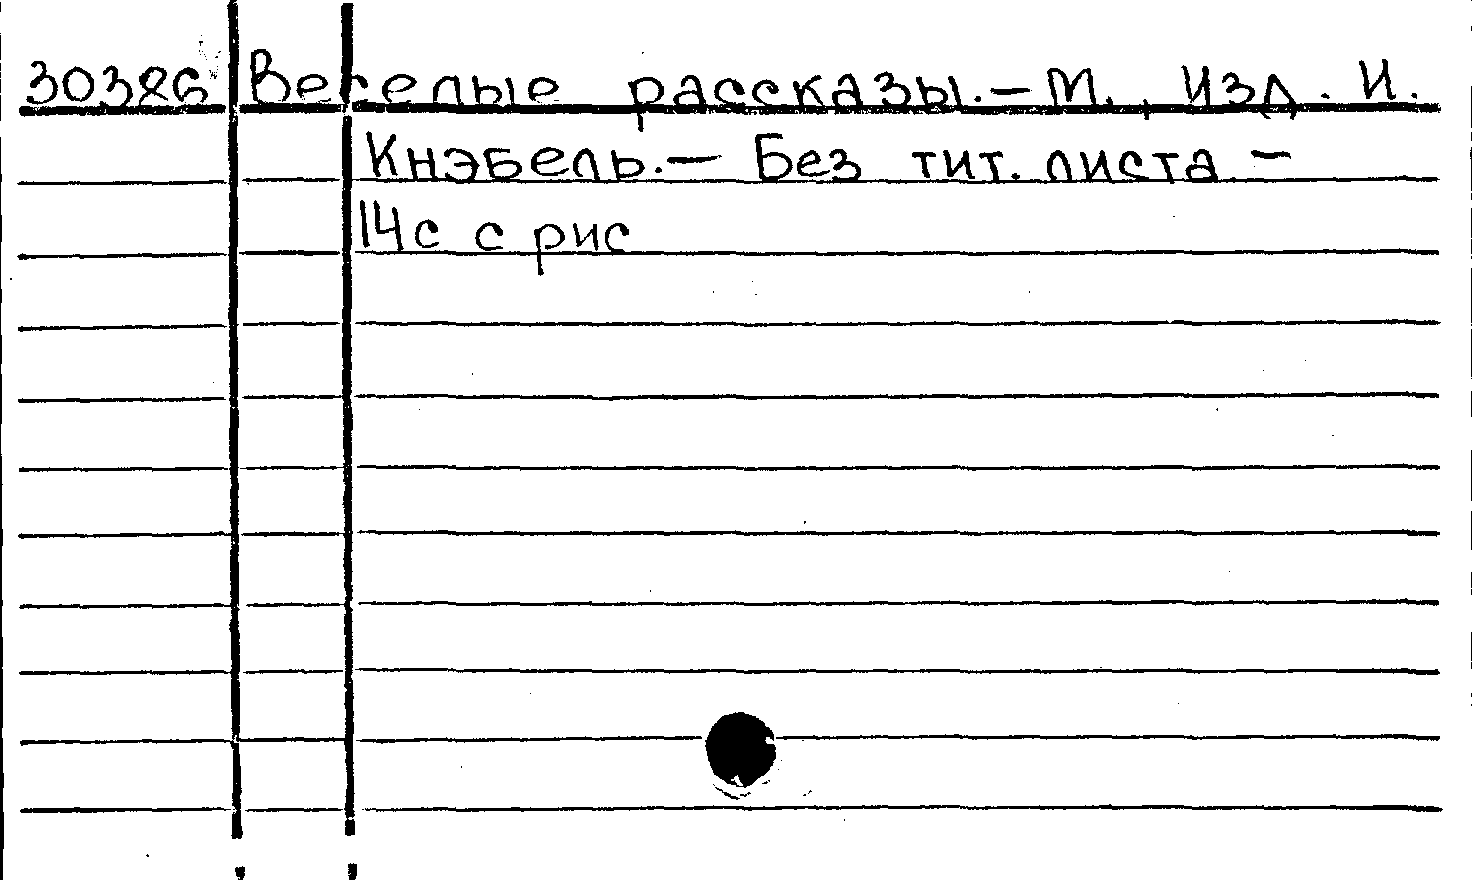 30386 Веселые рассказы.— М., изд. И.
Кнэбель.— Без тит. листа —
14с с рис